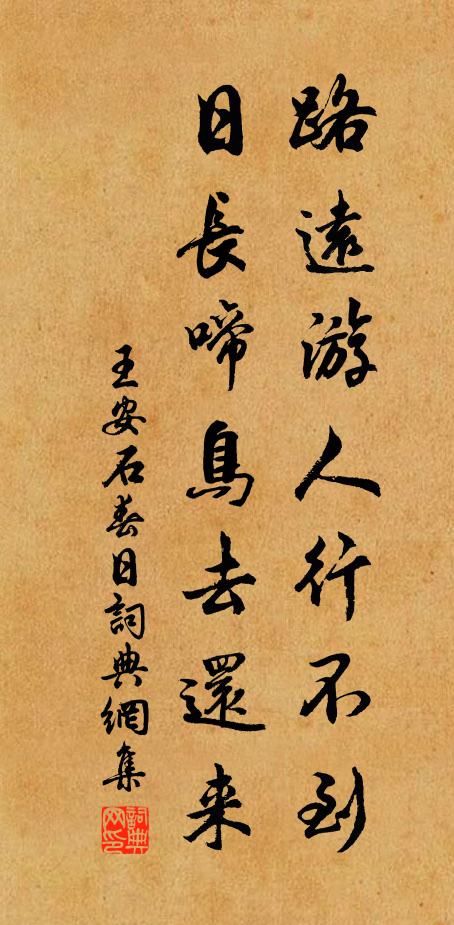 路遠游人行不到
日長啼鳥去還来
王安石春日詞典網集
詞典网印